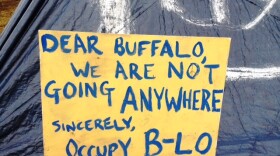 DEAR BUFFALO,
WE ARE NOT
GOING ANYWHERE
SINCERELY,
OCCUPY B-LO